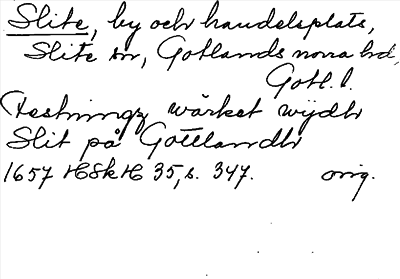 Slite, by och handelsplats,
Slite sn, Gotlands norra hd,
Gotl. l.
Festningz wärket wydh
Slit på Gottlandh
1657 HSkH 35, s. 347. orig.